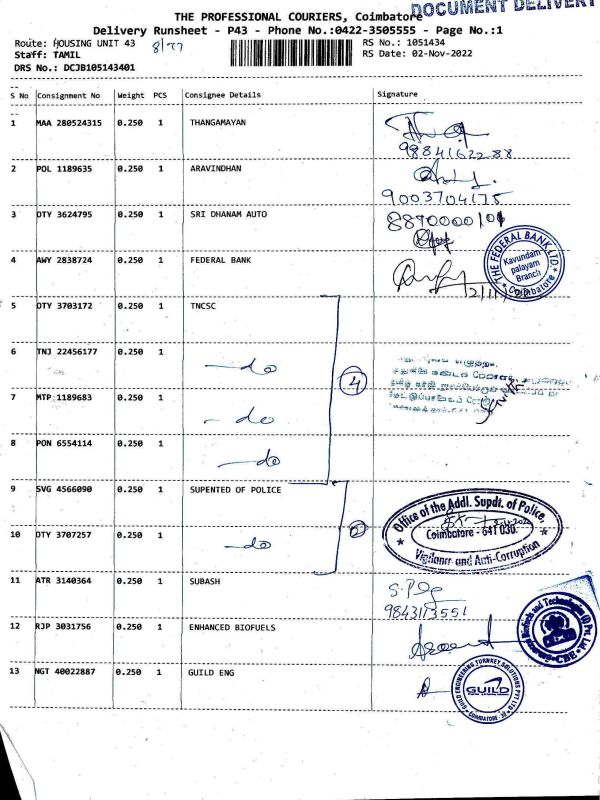 DOCUMENT DELIVERY
THE PROFESSIONAL COURIERS, Coimbatore
Delivery Runsheet - P43 - Phone No.:0422-3505555 - Page No.:1
Route: HOUSING UNIT 43
RS No.: 1051434
Staff: TAMIL
RS Date: 02-Nov-2022
DRS No.: DCJB105143401
S No Consignment No Weight PCS Consignee Details Signature
1 MAA 280524315 0.250 1 THANGAMAYAN
9884162288
2 POL 1189635 0.250 1 ARAVINDHAN
9003704175
3 DTY 3624795 0.250 1 SRI DHANAM AUTO
8870000101
4 AWY 2838724 0.250 1 FEDERAL BANK
THE FEDERAL BANK LTD
Kavundam
palayam
Branch
Coimbatore
5 DTY 3703172 0.250 1 TNCSC
6 TNJ 22456177 0.250 1
do
4
7 MTP 1189683 0.250 1
do
8 PON 6554114 0.250 1
do
9 SVG 4566090 0.250 1 SUPENTED OF POLICE
Office of the Addl. Supdt. of Police,
Coimbatore - 641 030.
Vigilance and Anti-Corruption
2
10 DTY 3707257 0.250 1
do
11 ATR 3140364 0.250 1 SUBASH
9843113551
12 RJP 3031756 0.250 1 ENHANCED BIOFUELS
13 NGT 40022887 0.250 1 GUILD ENG
GUILD ENGINEERING TURNKEY SOLUTIONS PVT LTD
GUILD
COIMBATORE - 30